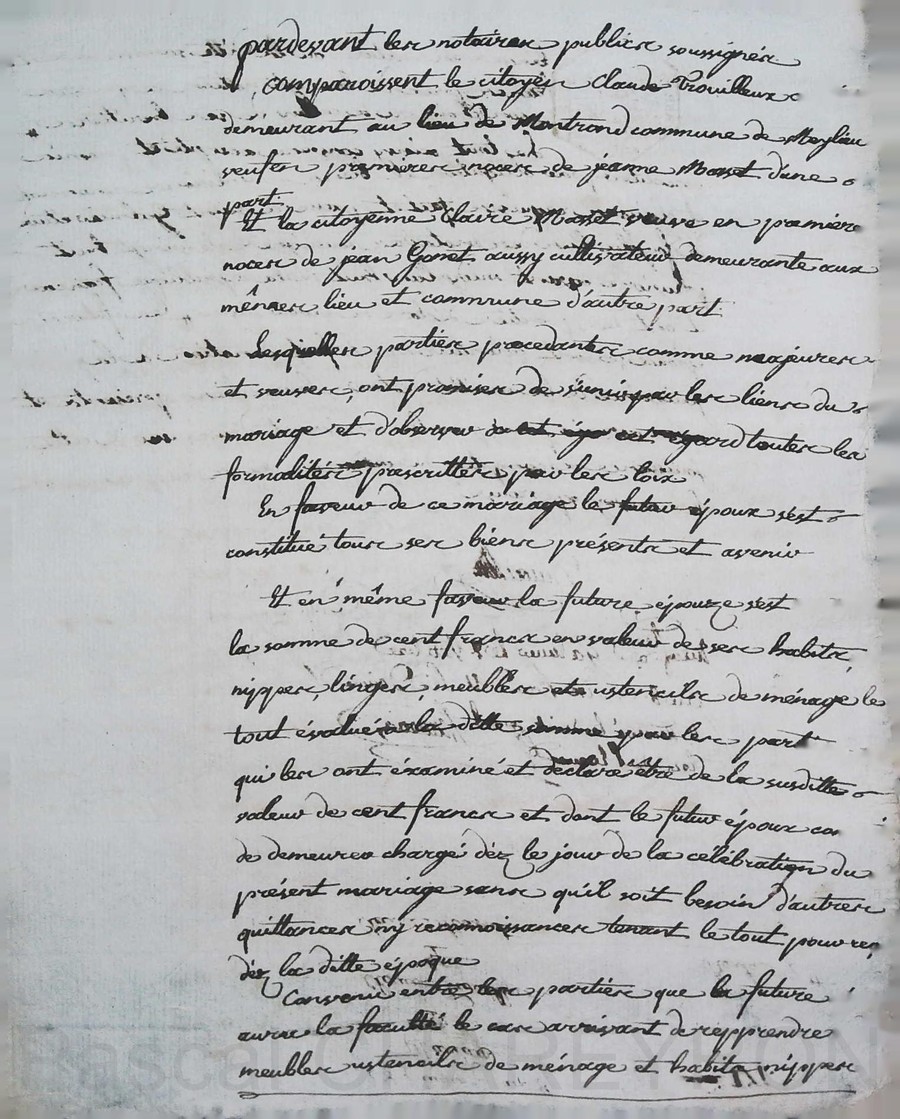 pardevant les notaires publics soussignés
comparoissent le citoyen Claude Trouilleux
demeurant au lieu de Montrond commune de Meylieu
veuf en premieres noces de jeanne Masset d'une
part.
Et la citoyenne Claire Masset veuve en premiere
noces de jean Gonet aussy cultivateur demeurante aux
mêmes lieu et commune d'autre part
Lesquelles parties procedantes comme majeures
et veuves, ont promises de s'unir par les liens du
mariage et d'observer a cet égard toutes les
formalités prescrittes par les loix
En faveur de ce mariage le futur époux s'est
constitué tous ses biens présents et avenir
Et en même faveur la future épouze s'est
la somme de cent francs en valeur de ses habits,
nippes, linges, meubles et ustencils de ménage le
tout évalué a la ditte somme par les part
qui les ont éxaminé et déclaré être de la susditte
valeur de cent francs et dont le futur époux con
de demeurer chargé dèz le jour de la célébration du
présent mariage sans qu'il soit besoin d'autres
quittances ny reconnoissances tenant le tout pour reç
dèz la ditte époque
Convenu entre les parties que la future
aura la faculté le cas arrivant de repprendre
meubles ustencils de ménage et habits nippes